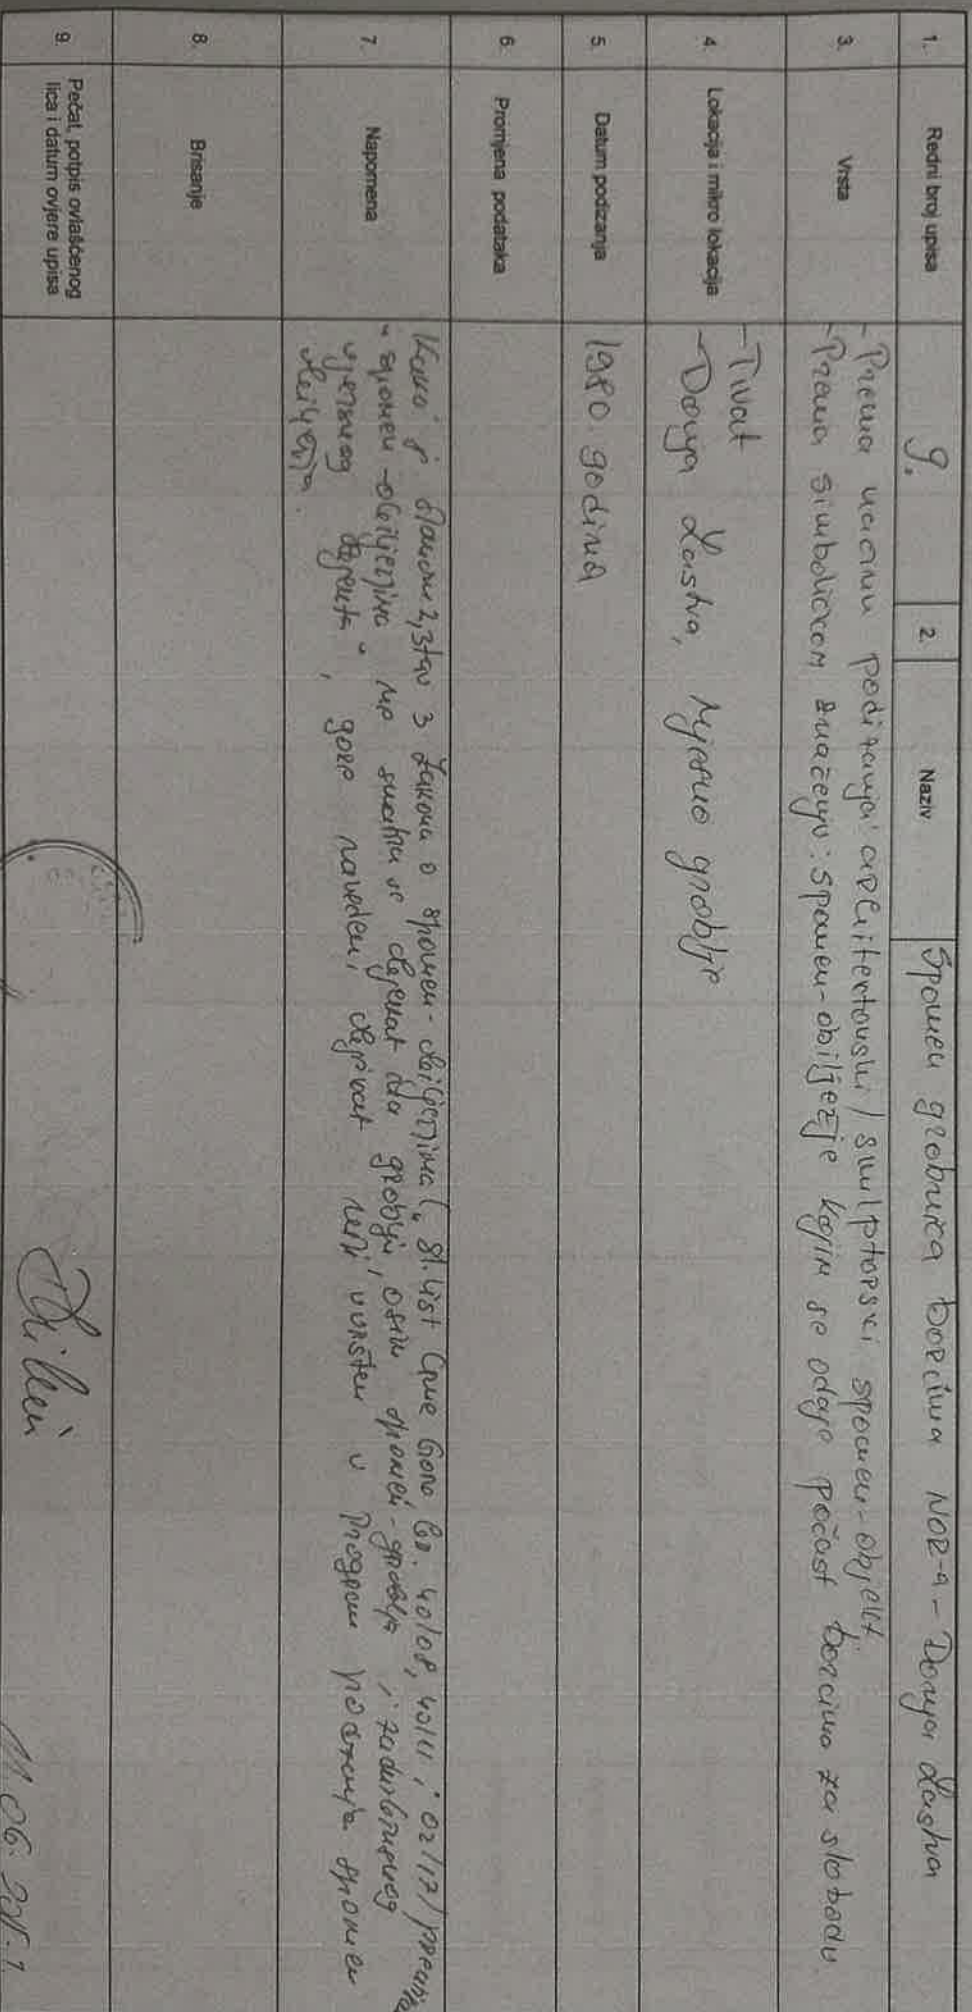 1. Redni broj upisa 9. 2. Naziv Spomen grobnica borcima NOR-a - Donja Lastva
3. Vrsta
- Prema načinu podizanja: arhitektonski / skulptorski spomen-objekt
- Prema simboličkom značenju: spomen-obilježje kojim se odaje počast borcima za slobodu
4. Lokacija i mikro lokacija
- Tivat
- Donja Lastva, Mjesno groblje
5. Datum podizanja 1980. godina
6. Promjena podataka
7. Napomena
Kako je članom 2, stav 3 Zakona o spomen-obilježjima („Sl. list Crne Gore br. 40/08, 40/11 i 02/17/
" spomen-obilježjima ne smatra se objekat na groblju, osim spomen-groblja i
vjerskog objekta", gore navedeni objekat nije uvršten u Program podizanja spomen
obilježja.
8. Brisanje
9. Pečat, potpis ovlašćenog
lica i datum ovjere upisa
11.06.